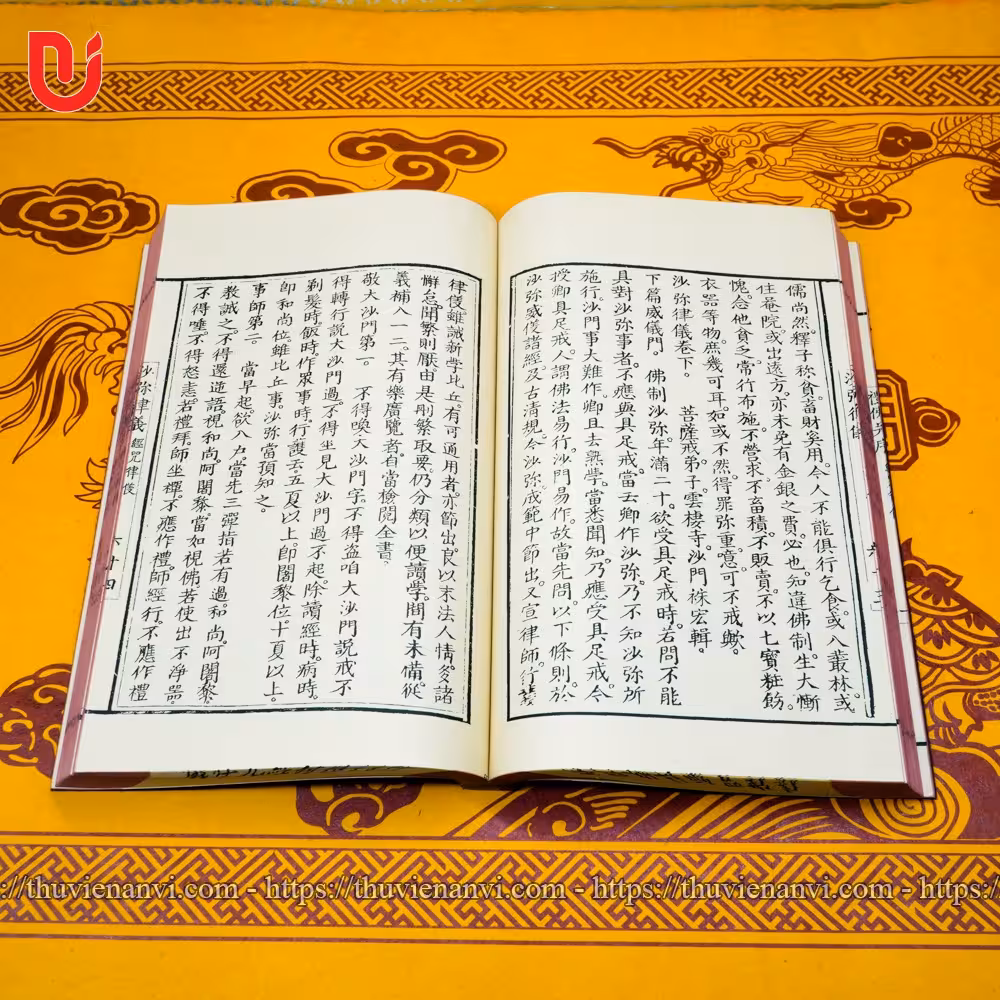 儒尚然。釋子称貧。畜財奚用。今人不能俱行乞食。或入叢林。或
住菴院。或出遠方。亦未免有金銀之費。必也知違佛制。生大慚
愧。念他貧乏。常行布施。不營求。不畜積。不販賣。不以七寶粧飾
衣器等物。庶幾可耳。如或不然。得罪弥重。噫。可不戒歟。
沙弥律儀卷下。 菩薩戒弟子。雲棲寺。沙門袾宏輯。
下篇威儀門。 佛制沙弥。年滿二十。欲受具足戒時。若問不能
具對沙弥事者。不應與具足戒。當云卿作沙弥。乃不知沙弥所
施行。沙門事大難作。卿且去熟學。當悉聞知。乃應受具足戒。今
授卿具足戒。人謂佛法易行。沙門易作。故當先問。以下條則。於
沙弥威儀諸經。及古清規。今沙弥戒範中節出。又宣律師行護
律儀。雖誡新學比丘。有可通用者。亦節出。良以末法人情。多諸
懈怠。聞繁則厭。由是刪繁取要。仍分類以便讀學。間有未備。從
義補入一二。其有樂廣覽者。自當檢閱全書。
敬大沙門第一。 不得喚大沙門字。不得盗咱大沙門說戒。不
得轉行說大沙門過。不得坐見大沙門過不起。除讀經時。病時。
剃髮時。飯時。作眾事時。行護云。五夏以上。即闍黎位。十夏以上。
即和尚位。雖比丘事。沙弥當預知之。
事師第二。 當早起。欲入户。當先三彈指。若有過。和尚。阿闍黎。
教誡之。不得還逆語。視和尚。阿闍黎。當如視佛。若使出不淨器。
不得唾。不得怒恚。若禮拜。師坐禪。不應作禮。師經行。不應作禮
沙弥律儀 經咒律儀 六十四
://thuvienanvi.com - https://thuvienanvi.com - https://thuvienanvi.com - https://